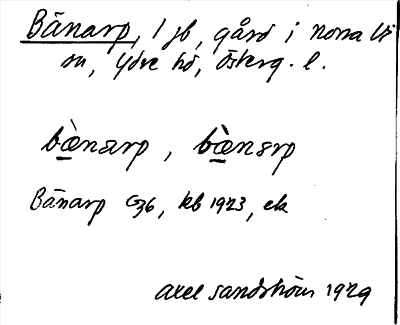 Bänarp, 1 jb, gård i norra Vi
sn, Ydre hd, Österg. l.
bæ̀narp, bæ̀narp
Bänarp G36, kb 1923, ek
Axel Sandström 1929